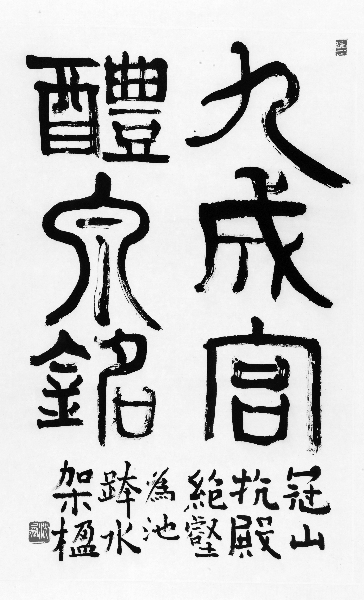 九成宮
醴泉銘
冠山
抗殿
絶壑
為池
跨水
架楹